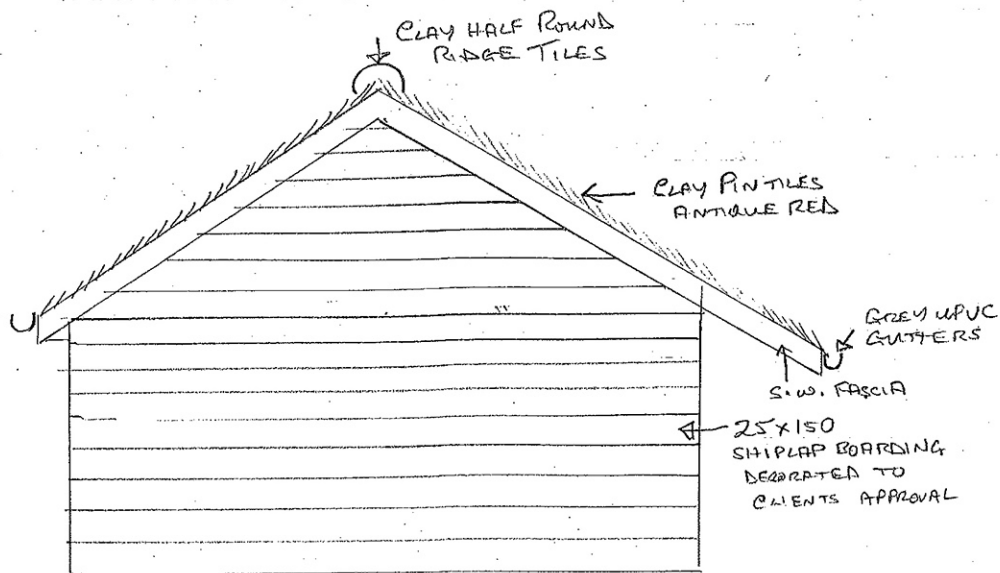 CLAY HALF ROUND
RIDGE TILES
CLAY PINTILES
ANTIQUE RED
GREY UPVC
GUTTERS
S.W. FASCIA
25x150
SHIPLAP BOARDING
DECORATED TO
CLIENTS APPROVAL